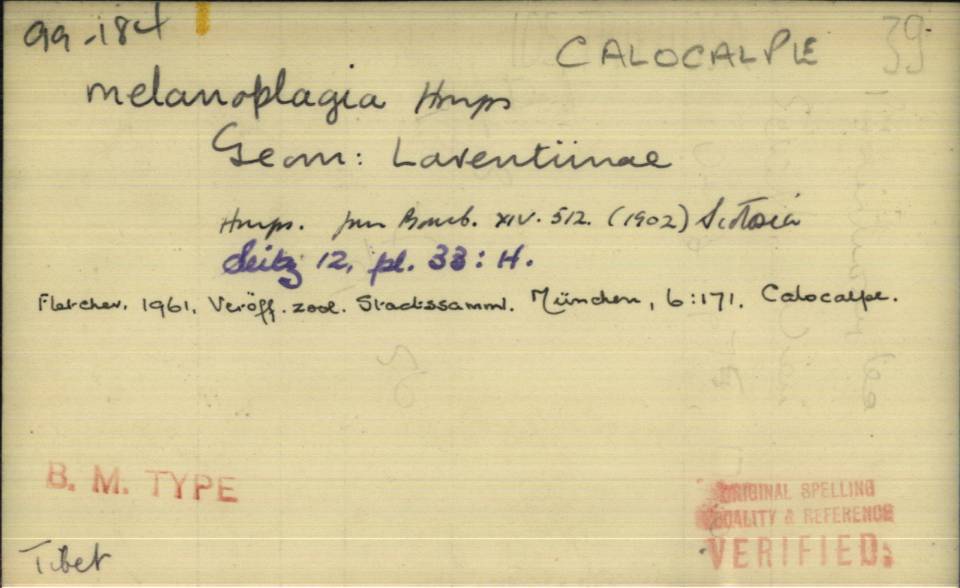 99.184
CALOCALPE
39
melanoplagia Hmps
Geom: Larentiinae
Hmps. Jnr Bomb. XIV. 512. (1902) Scotosia
Seitz 12, pl. 33: H.
Fletcher. 1961, Veröff. zool. Staatssamml. München, 6:171. Calocalpe.
B. M. TYPE
ORIGINAL SPELLING
LOCALITY & REFERENCE
VERIFIED:
Tibet